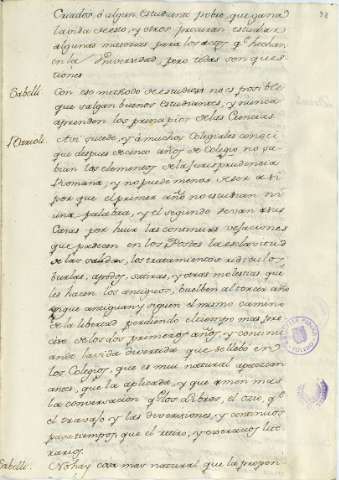 Criados, ó algun Estudiante pobre, que gana
la vida de esto, y otros procuran estudiar
algunas materias para los actos qe. se hechan
en la Universidad, pero todas son ques
tiones
Sabelli. Con ese methodo de estudiar no es posible
que salgan buenos Estudiantes, y nunca
aprenden los principios de las Ciencias.
Asi sucede, y á muchos Colegiales conoci
que despues de cinco años de Colegio no sa
bian los elementos de la Jurisprudencia
Romana, y no puede menos de ser asi
por que el primer año no estudian ni
una palabra, y el segundo se van a sus
Casas por huir las continuas vejaciones
que padecen en los Postes la esclavitud
de las salidas, los tratamientos ridiculos
burlas, apodos, satiras, y otras molestias que
les hacen los antiguos, buelben al tercer año
en que antiguan y siguen el mismo camino
de la libertad perdiendo el tiempo mas pre
ciso de los dos primeros años, y continu
ando la vida divertida que se lleba en
los Colegios, que es mui natural apetezcan
antes, que la aplicada, y que amen mas
la conversacion qe. los Libros, el ocio, qe.
el travajo y las diversiones, y continuos
pasatiempos, que el retiro, y exercicios lite
rarios.
Sabelli. No hay cosa mas natural que la propen